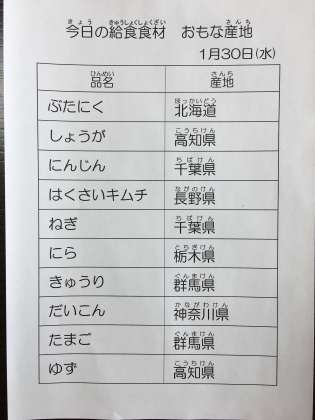 今日の給食食材　おもな産地
1月30日(水)
品名　産地
ぶたにく　北海道
しょうが　高知県
にんじん　千葉県
はくさいキムチ　長野県
ねぎ　千葉県
にら　栃木県
きゅうり　群馬県
だいこん　神奈川県
たまご　群馬県
ゆず　高知県